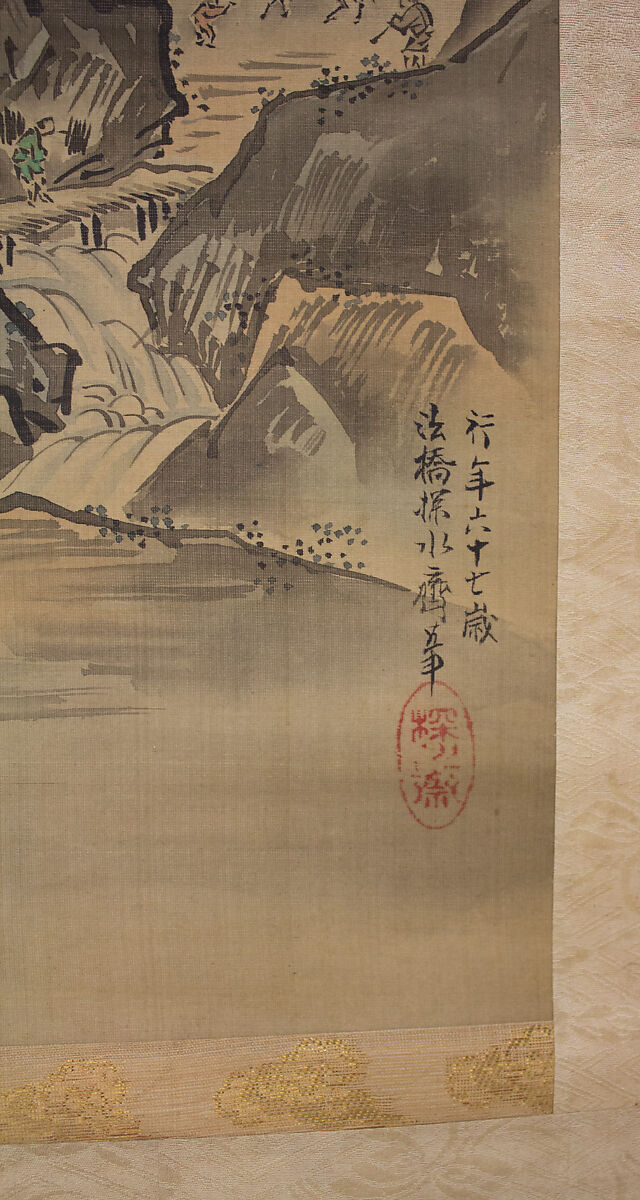 行年六十七歳
法橋探水齋筆